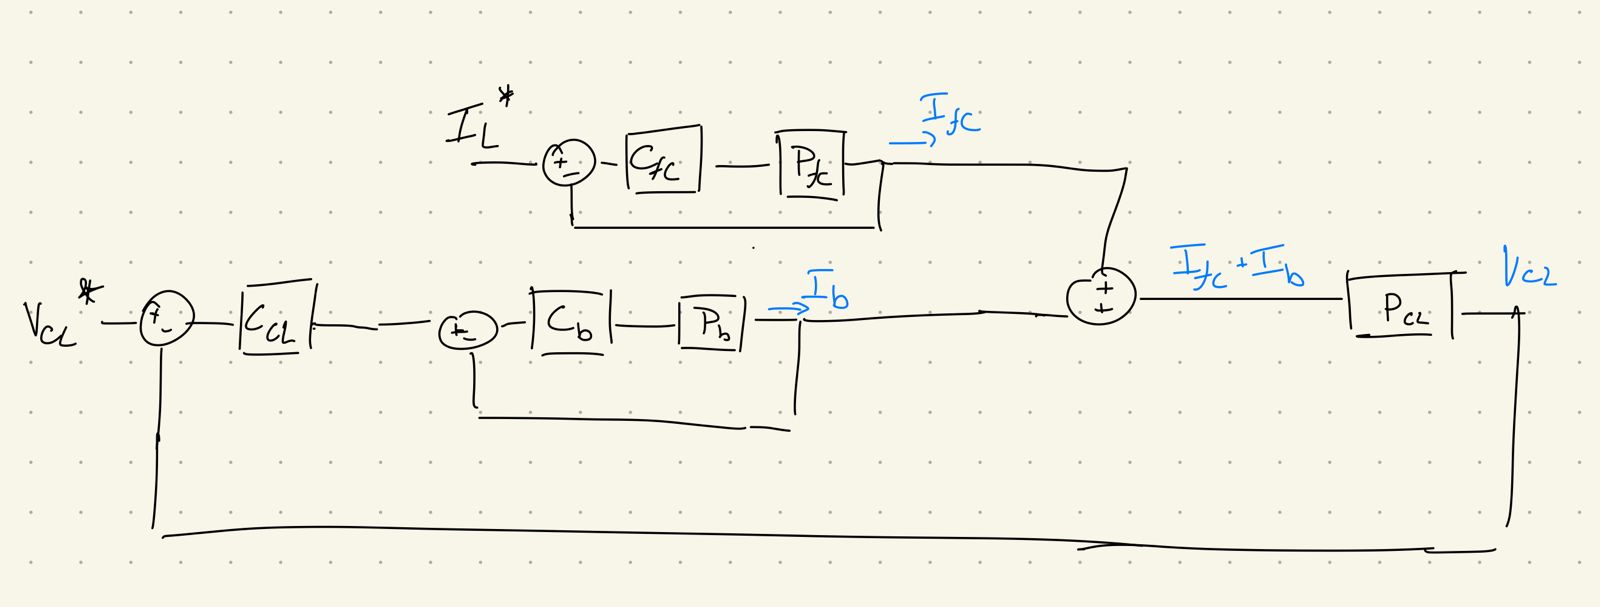 I_L*
+ -
C_fc
P_fc
I_fc
V_CL*
+ -
C_CL
+ -
C_b
P_b
I_b
+ +
I_fc + I_b
P_CL
V_CL